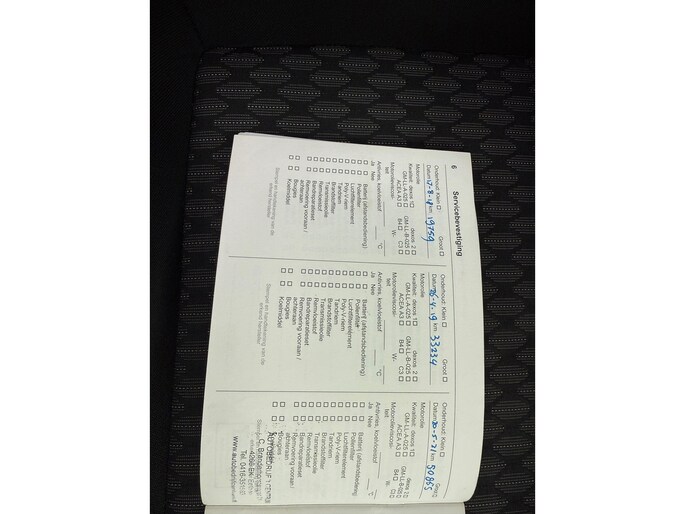 6
Servicebevestiging
Onderhoud: Klein ☐ Groot ☐
Datum 17-8-18 km 19759
Motorolie
Kwaliteit: dexos 1 ☐ dexos 2 ☐
GM-LL-A-025 ☐ GM-LL-B-025 ☐
ACEA A3 ☐ B4 ☐ C3 ☐
Motorolieviscosi- W-
teit
Antivries, koelvloeistof °C
Ja Nee
☐ ☐ Batterij (afstandsbediening)
☐ ☐ Pollenfilter
☐ ☐ Luchtfilterelement
☐ ☐ Poly-V-riem
☐ ☐ Tandriem
☐ ☐ Brandstoffilter
☐ ☐ Transmissieolie
☐ ☐ Remvloeistof
☐ ☐ Bandreparatieset
☐ ☐ Remvoering vooraan /
achteraan
☐ ☐ Bougies
☐ ☐ Koelmiddel
Stempel en handtekening van de
erkend hersteller
Onderhoud: Klein ☐ Groot ☐
Datum 26-4-19 km 33234
Motorolie
Kwaliteit: dexos 1 ☐ dexos 2 ☐
GM-LL-A-025 ☐ GM-LL-B-025 ☐
ACEA A3 ☐ B4 ☐ C3 ☐
Motorolieviscosi- W-
teit
Antivries, koelvloeistof °C
Ja Nee
☐ ☐ Batterij (afstandsbediening)
☐ ☐ Pollenfilter
☐ ☐ Luchtfilterelement
☐ ☐ Poly-V-riem
☐ ☐ Tandriem
☐ ☐ Brandstoffilter
☐ ☐ Transmissieolie
☐ ☐ Remvloeistof
☐ ☐ Bandreparatieset
☐ ☐ Remvoering vooraan /
achteraan
☐ ☐ Bougies
☐ ☐ Koelmiddel
Stempel en handtekening van de
erkend hersteller
Onderhoud: Klein ☐ Groot ☐
Datum 20-5-21 km 50865
Motorolie
Kwaliteit: dexos 1 ☐ dexos 2 ☐
GM-LL-A-025 ☐ GM-LL-B-025 ☐
ACEA A3 ☐ B4 ☐ C3 ☐
Motorolieviscosi- W-
teit
Antivries, koelvloeistof °C
Ja Nee
☐ ☐ Batterij (afstandsbediening)
☐ ☐ Pollenfilter
☐ ☐ Luchtfilterelement
☐ ☐ Poly-V-riem
☐ ☐ Tandriem
☐ ☐ Brandstoffilter
☐ ☐ Transmissieolie
☐ ☐ Remvloeistof
☐ ☐ Bandreparatieset
☐ ☐ Remvoering vooraan /
achteraan
☐ ☐ Bougies
AUTOBEDRIJF
Tel. 0418-